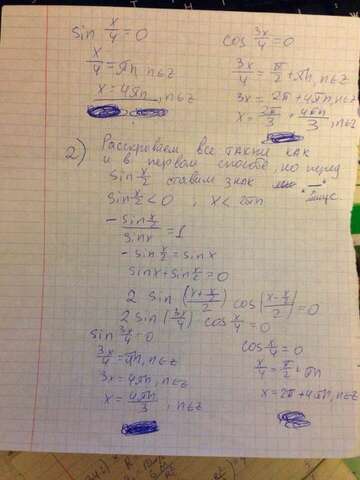 sin x/4 = 0
x/4 = πn, n∈Z
x = 4πn, n∈Z
cos 3x/4 = 0
3x/4 = π/2 + πn, n∈Z
3x = 2π + 4πn, n∈Z
x = 2π/3 + 4πn/3, n∈Z
2) Раскроваем все также как
и в первом способе, но перед
sin x/2 ставим знак "-"
минус.
sin x/2 < 0 ; x < 2πn
-sin x/2 / sin x = 1
-sin x/2 = sin x
sin x + sin x/2 = 0
2 sin ((x + x/2)/2) cos ((x - x/2)/2) = 0
2 sin (3x/4) cos x/4 = 0
sin 3x/4 = 0
3x/4 = πn, n∈Z
3x = 4πn, n∈Z
x = 4πn/3, n∈Z
cos x/4 = 0
x/4 = π/2 + πn
x = 2π + 4πn, n∈Z